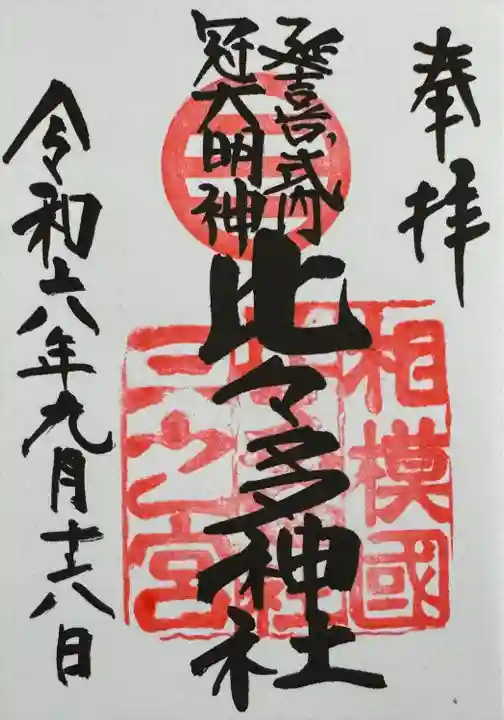 奉拝
延喜式内
冠大明神
比々多神社
相模國
三之宮
令和六年九月廿八日